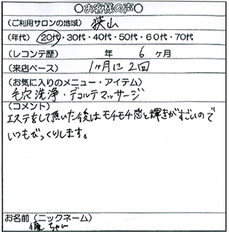 ●お客様の声●
(ご利用サロンの地域) 狭山
(年代) 20代・30代・40代・50代・60代・70代
(レコンテ歴) 年 6ヶ月
(来店ペース) 1ヶ月に2回
(お気に入りのメニュー・アイテム)
毛穴洗浄・デコルテマッサージ
(コメント)
エステをして頂いた後はモチモチ感と輝きがすごいので
いつもびっくりします。
お名前(ニックネーム)
ちゃん